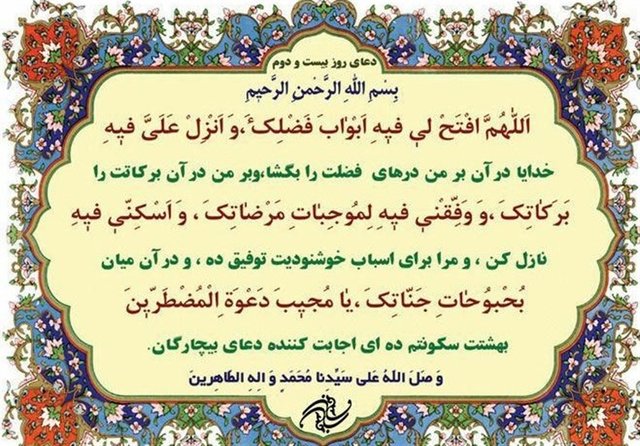 دعای روز بیست و دوم
بِسْمِ اللهِ الرَّحْمنِ الرَّحیمِ
اَللّهُمَّ افْتَحْ لی فیهِ اَبْوابَ فَضْلِکَ، وَ اَنْزِلْ عَلَیَّ فیهِ
خدایا در آن بر من درهای فضلت را بگشا، وبر من در آن برکاتت را
بَرَکاتِکَ، وَ وَفِّقْنی فیهِ لِمُوجِباتِ مَرْضاتِکَ، وَ اَسْکِنّی فیهِ
نازل کن ، و مرا برای اسباب خوشنودیت توفیق ده ، و در آن میان
بُحْبُوحاتِ جَنّاتِکَ، یا مُجیبَ دَعْوَةِ الْمُضْطَرّینَ
بهشتت سکونتم ده ای اجابت کننده دعای بیچارگان.
وَ صَلَ اللهُ عَلی سَیِّدِنا مُحَمَدٍ وَ الِهِ الطاهِرینَ